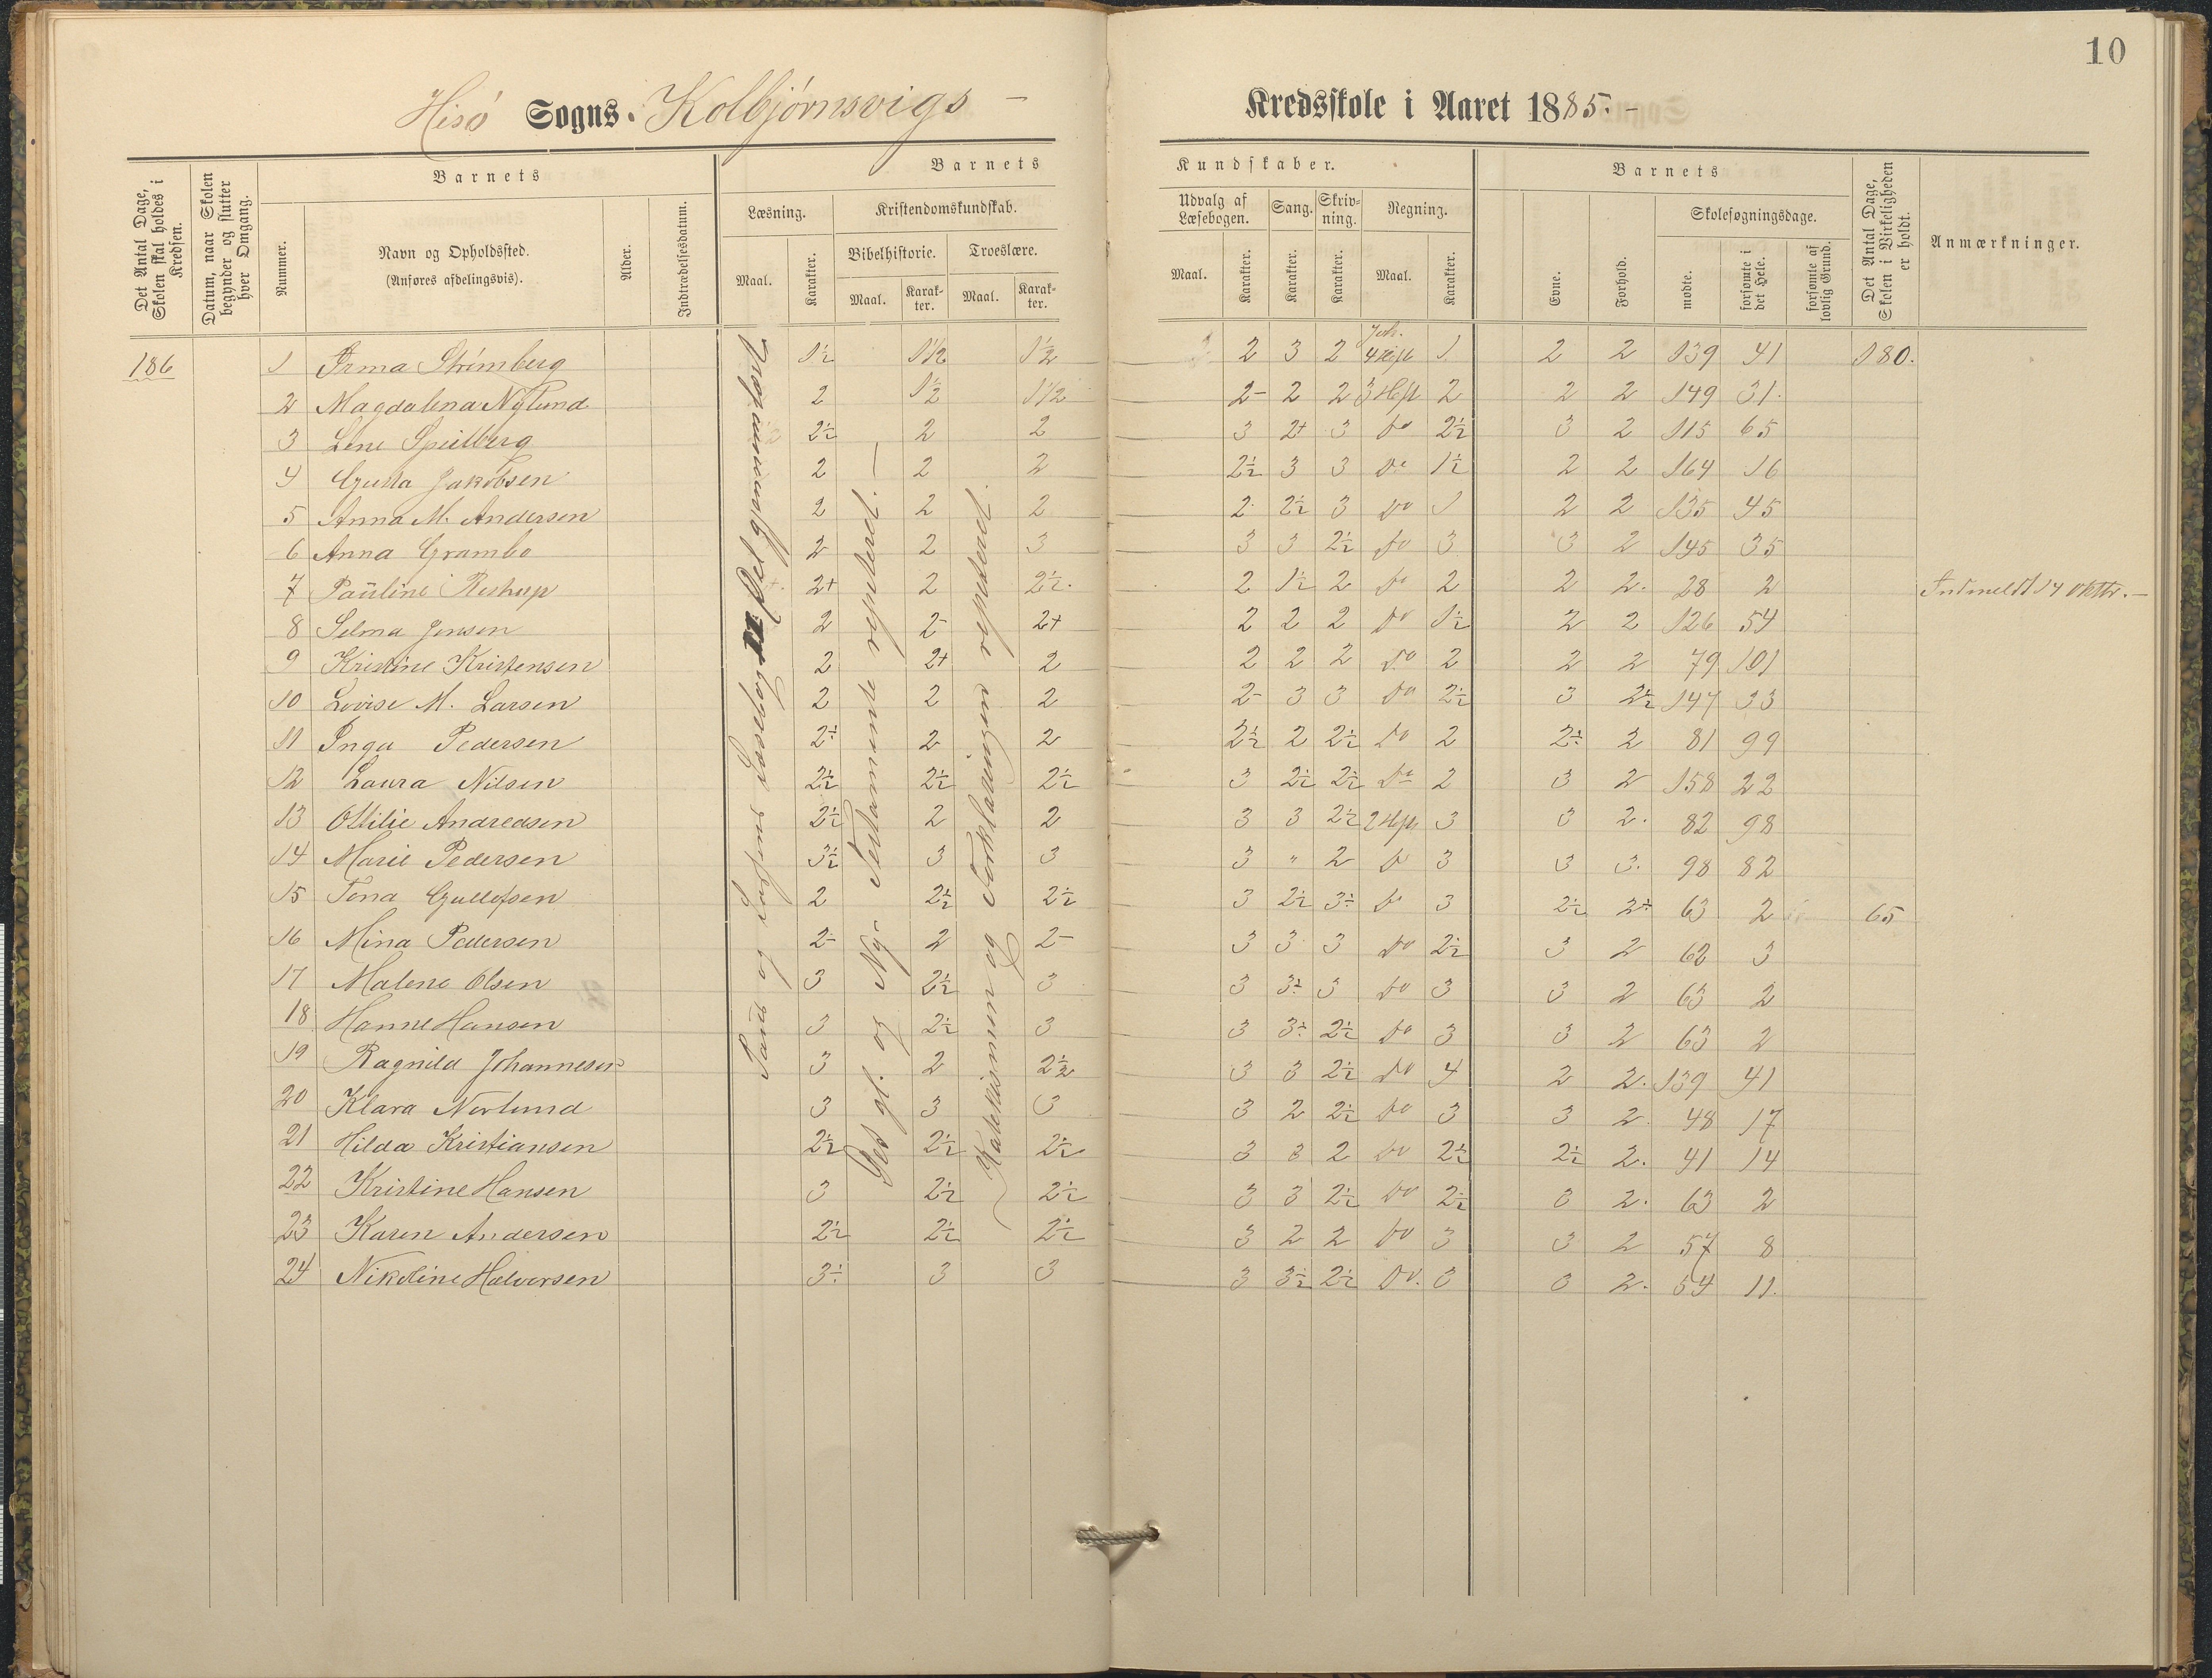 10
Hisö Sogns Kolbjörnsvigs - Kredsskole i Aaret 1885. -
Det Antal Dage, Skolen skal holdes i Kredsen.
Datum, naar Skolen begynder og slutter hver Omgang.
Barnets
Nummer.
Navn og Opholdssted.
(Anføres afdelingsvis).
Alder.
Indtrædelsesdatum.
Barnets Kundskaber.
Læsning.
Maal.
Karakter.
Kristendomskundskab.
Bibelhistorie.
Maal.
Karakter.
Troeslære.
Maal.
Karakter.
Udvalg af Læsebogen.
Maal.
Karakter.
Sang.
Karakter.
Skrivning.
Karakter.
Regning.
Maal.
Karakter.
Barnets
Evne.
Forhold.
Skolesøgningsdage.
mødte.
forsømte i det Hele.
forsømte af lovlig Grund.
Det Antal Dage, Skolen i Virkeligheden er holdt.
Anmærkninger.
Det gl. og Nye Testamente repeteret.
Katekismen og Forklaringen repeteret.
186 1 Irma Strömberg 1½ 1½ 1½ 2 3 2 4 1 2 2 139 41 180.
2 Magdalena Nylund 2 1½ 1½ 2- 2 2 3 Hft 2 2 2 149 31.
3 Lene Speilberg 2½ 2 2 3 2+ 3 Do 2½ 3 2 115 65
4 Gusta Jakobsen 2 2 2 2½ 3 3 Do 1½ 2 2 164 16
5 Anna M. Andersen 2 2 2 2 2½ 3 Do 1 2 2 135 45
6 Anna Grambo 2 2 3 3 3 2½ Do 3 3 2 145 35
7 Pauline Restrup 2+ 2 2½ 2 1½ 2 Do 2 2 2. 28 2 Indmeldt 14 Oktbr. -
8 Selma Jensen 2 2- 2+ 2 2 2 Do 1½ 2 2 126 54
9 Kristine Kristensen 2 2+ 2 2 2 2 Do 2 2 2 79 101
10 Lovise M. Larsen 2 2 2 2- 3 3 Do 2½ 3 2½ 147 33
11 Inga Pedersen 2½ 2 2 2½ 2 2½ Do 2 2½ 2 81 99
12 Laura Nilsen 2½ 2½ 2½ 3 2½ 2½ Do 2 3 2 158 22
13 Ottilie Andreasen 2½ 2 2 3 3 2½ 2 Hft 3 3 2. 82 98
14 Marie Pedersen 3½ 3 3 3 " 2 Do 3 3 3. 98 82
15 Tona Gullofsen 2 2½ 2½ 3 2½ 3½ Do 3 2½ 2½ 63 2 65
16 Mina Pedersen 2- 2 2- 3 3 3 Do 2½ 3 2 62 3
17 Malene Olsen 3 2½ 3 3 3½ 3 Do 3 3 2 63 2
18 Hanne Hansen 3 2½ 3 3 3½ 2½ Do 3 3 2 63 2
19 Ragnild Johannesen 3 2 2½ 3 3 2½ Do 4 2 2. 139 41
20 Klara Norlund 3 3 3 3 2 2½ Do 3 3 2. 48 17
21 Hilda Kristiansen 2½ 2½ 2½ 3 3 2 Do 2½ 2½ 2. 41 14
22 Kristine Hansen 3 2½ 2½ 3 3 2½ Do 2½ 3 2. 63 2
23 Karen Andersen 2½ 2½ 2½ 3 2 2 Do 3 3 2 57 8
24 Nikoline Halvorsen 3½ 3 3 3 3½ 2½ Do. 3 3 2. 54 11.